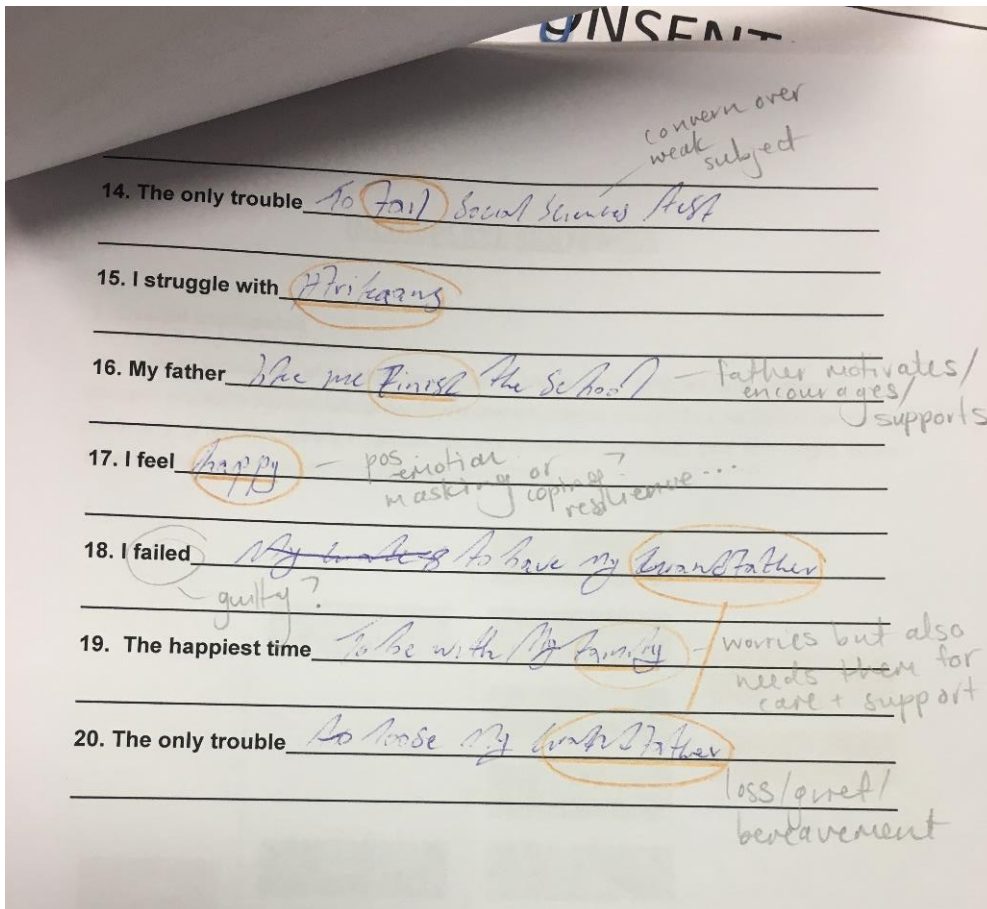 ONSENT
concern over
weak subject
14. The only trouble To Fail Social Sciences test
15. I struggle with Afrikaans
16. My father like me Finish the School – father motivates/
encourages/
supports
17. I feel happy – pos emotion
masking or coping? resilience...
18. I failed to have my Grandfather
– guilty?
19. The happiest time To be with My family – worries but also
needs them for
care + support
20. The only trouble to loose My Grandfather
loss/grief/
bereavement